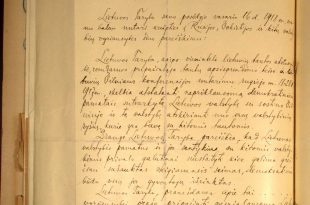 Lietuvos Taryba savo posėdyje vasario 16 d. 1918 m. vie-
nu balsu nutarė kreiptis į Rusijos, Vokietijos ir kitų vals-
tybių vyriausybes šiuo pareiškimu:
Lietuvos Taryba, kaipo vienintelė lietuvių tautos atstovy-
bė, remdamos pripažintąja tautų apsisprendimo teise ir lietu-
vių Vilniaus konferencijos nutarimu rugsėjo mėn. 18-23 d.
1917 m., skelbia atstatanti nepriklausomą demokratiniais
pamatais sutvarkytą Lietuvos valstybę su sostine Vilniuje
ir tą valstybę atskirianti nuo visų valstybinių
ryšių, kurie yra buvę su kitomis tautomis.
Drauge Lietuvos Taryba pareiškia, kad Lietuvos
valstybės pamatus ir jos santykius su kitomis valstybė-
mis privalo galutinai nustatyti kiek galima grei-
čiau sušauktas steigiamasis seimas, demokratiniu
būdu visų jos gyventojų išrinktas.
Lietuvos Taryba pranešdama apie tai